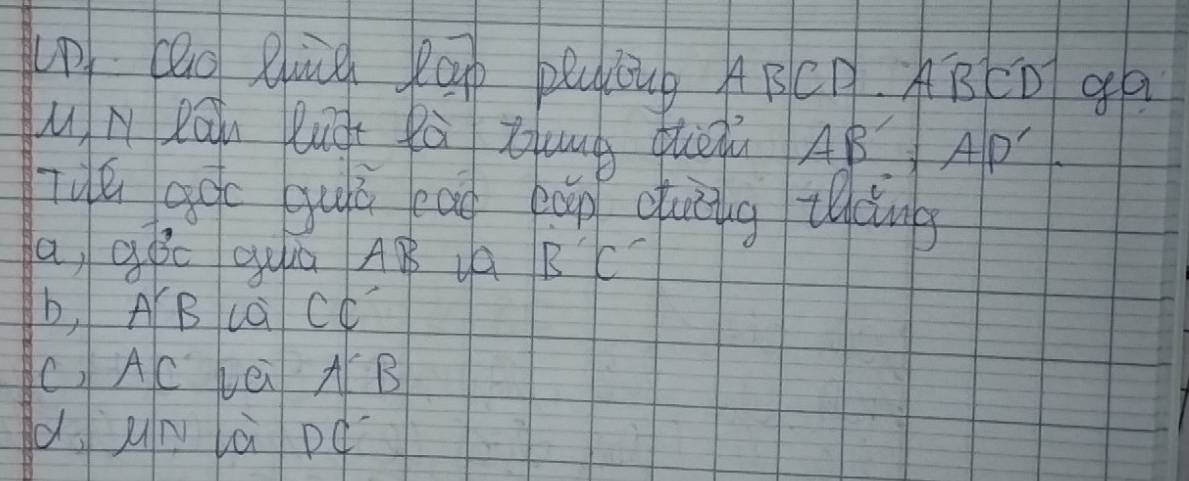 VD. Cho hình lập phương ABCD.A'B'C'D' gọi
M, N lần lượt là trung điểm AB', AD'.
Tính góc giữa các cặp đường thẳng
a, góc giữa AB và B'C'
b, A'B và CC'
c, AC và A'B
d, MN và DC'